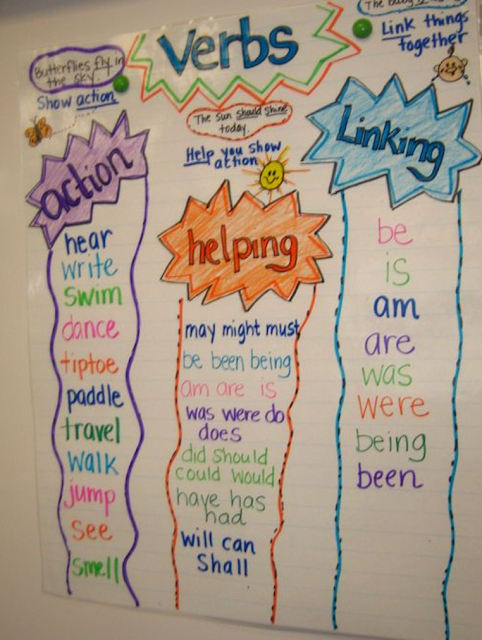 Verbs
Butterflies fly in
the sky.
Show action
action
hear
write
swim
dance
tiptoe
paddle
travel
walk
jump
see
smell
The sun should shine
today.
Help you show
action
helping
may might must
be been being
am are is
was were do
does
did should
could would
have has
had
will can
shall
Link things
together
Linking
be
is
am
are
was
were
being
been